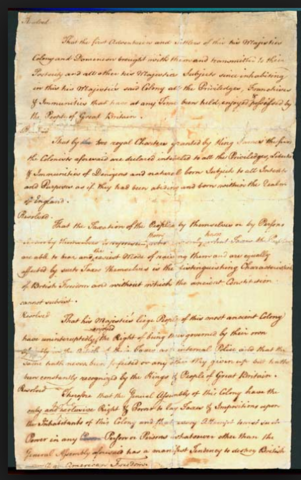 Resolved
That the first Adventurers and Settlers of this his Majesties
Colony and Dominion brought with them and transmitted to their
Posterity and all other his Majesties Subjects since inhabiting
in this his Majesties said Colony all the Priviledges, Franchises
& Immunities that have at any Time been held, enjoyed, & possessed by
the People of Great Britain.
That by the two royal Charters granted by King James the first
the Colonists aforesaid are declared intituled to all the Priviledges, Liberties
& Immunities of Denizens and natural born Subjects to all Intents
and Purposes as if they had been abiding and born within the Realm
of England.
Resolved
That the Taxation of the People by themselves or by Persons
chosen by themselves to represent them who can only know what Taxes the People
are able to bear and the easiest Mode of raising them and are equally
affected by such Taxes themselves is the distinguishing Characteristick
of British Freedom and without which the ancient Constitution
cannot subsist.
Resolved
That his Majesties liege People of this most ancient Colony
have uninterruptedly enjoyed the Right of being thus governed by their own
Assembly in the Article of their Taxes and internal Police and that the
same hath never been forfeited or any other Way given up but hath
been constantly recognized by the Kings & People of Great Britain.
Resolved
Therefore that the General Assembly of this Colony have the
only and sole exclusive Right & Power to lay Taxes & Impositions upon
the Inhabitants of this Colony and that every Attempt to vest such
Power in any Person or Persons whatsoever other than the
General Assembly aforesaid has a manifest Tendency to destroy British
as American Freedom.